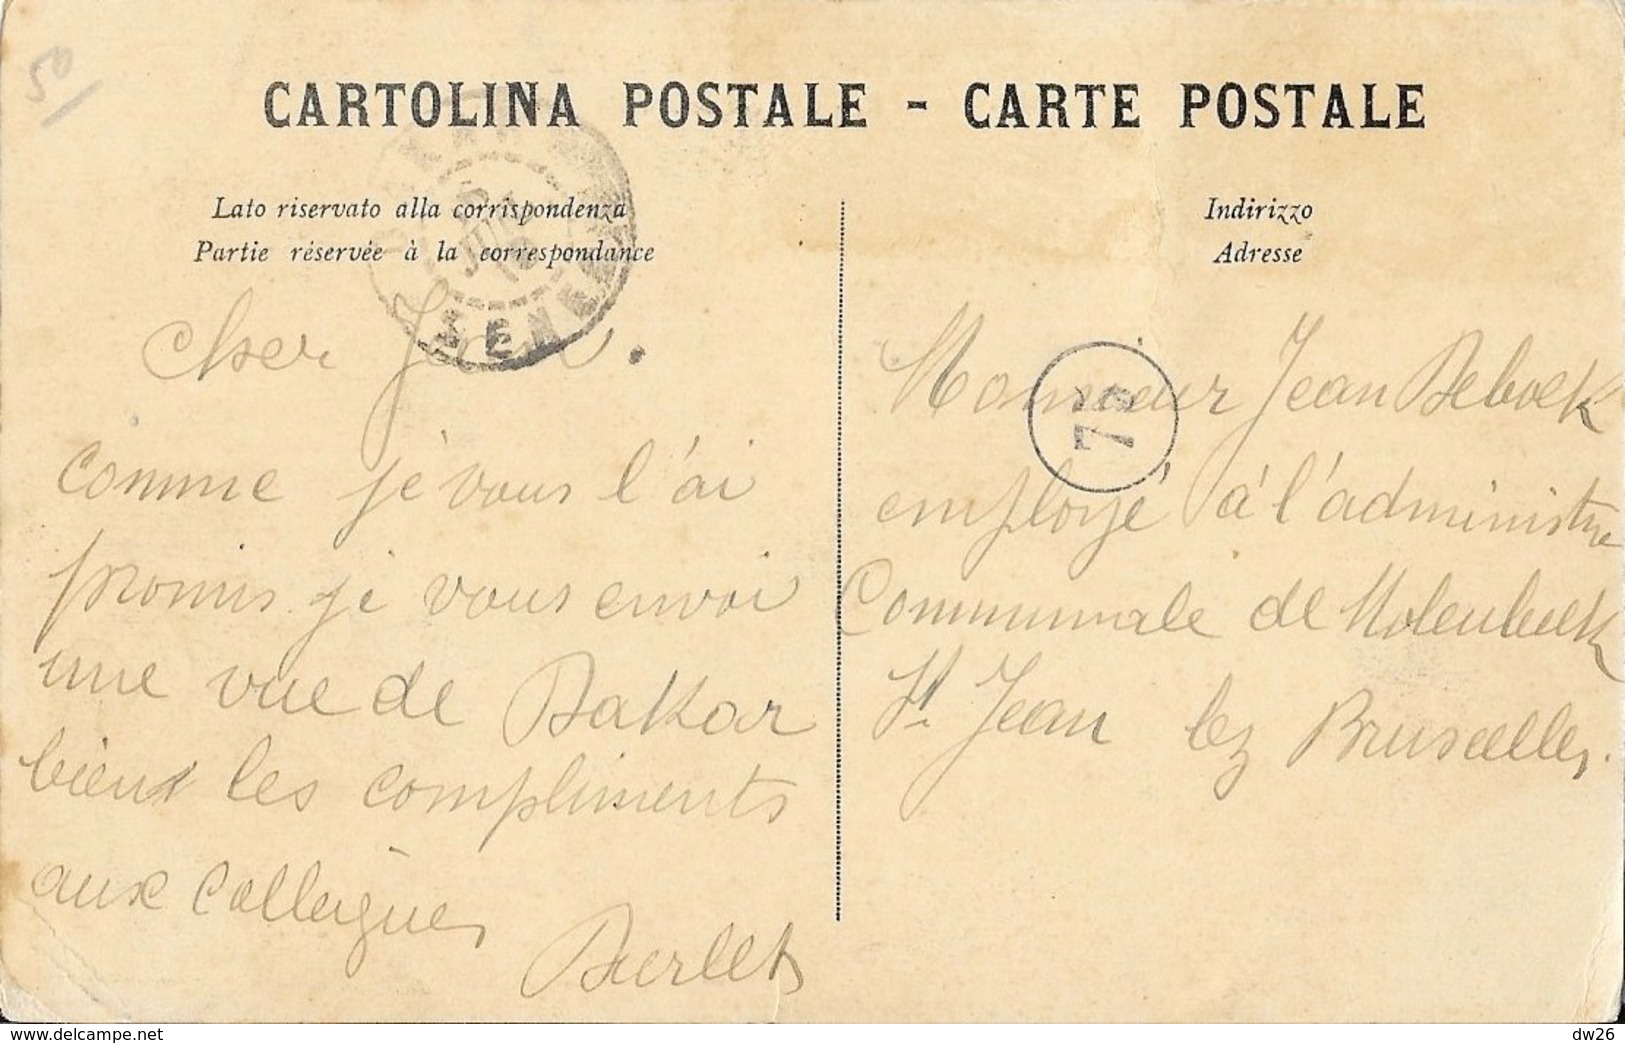 50/
CARTOLINA POSTALE - CARTE POSTALE
Lato riservato alla corrispondenza
Partie réservée à la correspondance
Cher Jean.
comme je vous l'ai
promis je vous envoi
une vue de Dakar
bien les compliments
aux Collègues
Indirizzo
Adresse
Monsieur Jean Deboeck
employé à l'administre
Communale de Molenbeek
St Jean lez Bruxelles.
75
dw26